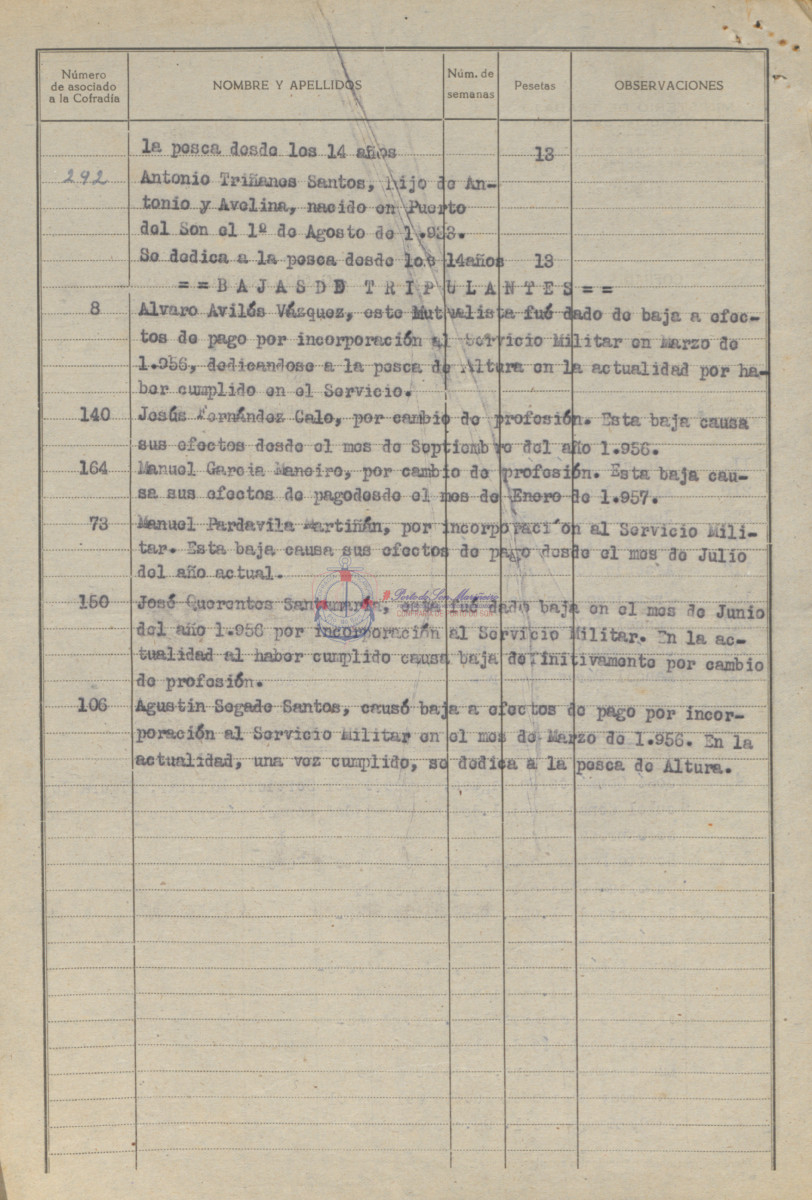 Número
de asociado
a la Cofradía
NOMBRE Y APELLIDOS
Núm. de
semanas
Pesetas
OBSERVACIONES
la pesca desde los 14 años 13
292 Antonio Triñanes Santos, hijo de An-
tonio y Avelina, nacido en Puerto
del Son el 1º de Agosto de 1.933.
Se dedica a la pesca desde los 14años 13
==BAJASDE TRIPULANTES==
8 Alvaro Avilés Vázquez, este Mutualista fué dado de baja a efec-
tos de pago por incorporación al Servicio Militar en Marzo de
1.956, dedicandose a la pesca de Altura en la actualidad por ha-
ber cumplido en el Servicio.
140 Jesús Fernández Calo, por cambio de profesión. Esta baja causa
sus efectos desde el mes de Septiembre del año 1.956.
164 Manuel Garcia Maneiro, por cambio de profesión. Esta baja cau-
sa sus efectos de pagodesde el mes de Enero de 1.957.
73 Manuel Pardavila Martiñán, por incorporación al Servicio Mili-
tar. Esta baja causa sus efectos de pago desde el mes de Julio
del año actual.
150 José Querentes Santamaría, este fué dado baja en el mes de Junio
del año 1.956 por incorporación al Servicio Militar. En la ac-
tualidad al haber cumplido causa baja definitivamente por cambio
de profesión.
106 Agustin Segade Santos, causó baja a efectos de pago por incor-
poración al Servicio Militar en el mes de Marzo de 1.956. En la
actualidad, una vez cumplido, se dedica a la pesca de Altura.